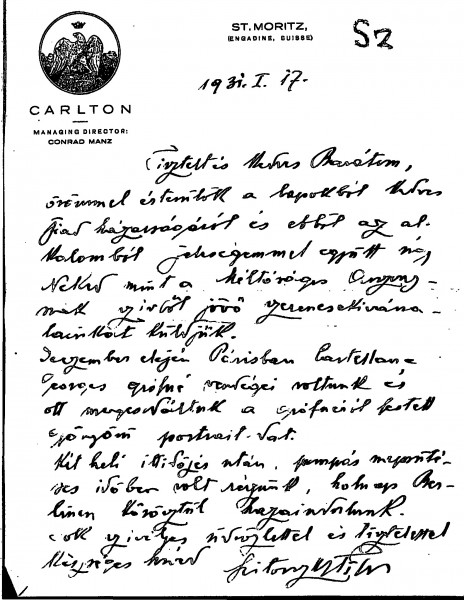 ST. MORITZ,
(ENGADINE, SUISSE)
Sz
CARLTON
MANAGING DIRECTOR:
CONRAD MANZ
1931. I. 17.
Tisztelt és Kedves Barátom,
örömmel értesültök a lapokból kedves
fiad házasságáról és ebből az al-
kalomból feleségemmel együtt úgy
Neked mint a Méltóságos Asszony-
nak szívből jövő szerencsekívána-
tainkat küldjük.
Deczember elején Párisban Castellane
Georges grófné vendégei voltunk és
ott megcsodáltuk a grófnéról festett
gyönyörű portrait-dat.
Két heti ittidőzés után, pompás napsüté-
ses időben volt részünk, holnap Ber-
linen keresztül hazaindulunk.
Sok szívélyes üdvözlettel és tisztelettel
készséges híved